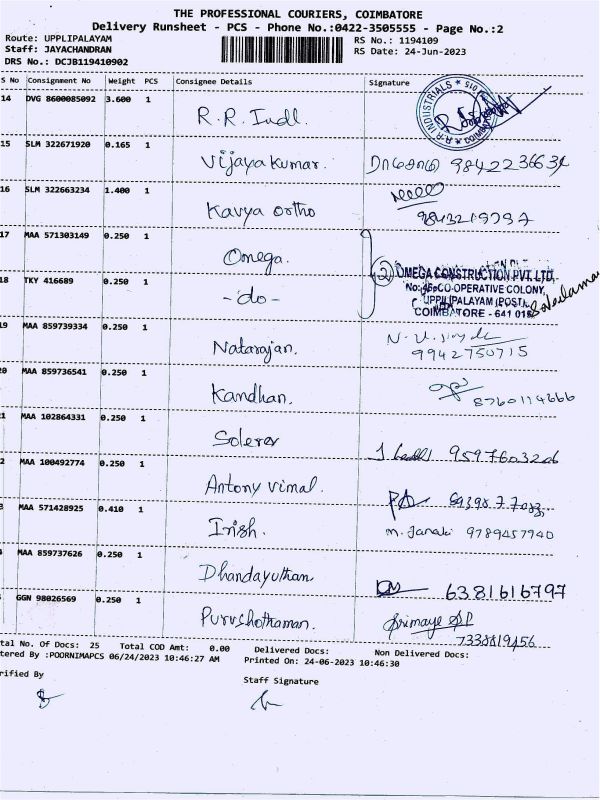 THE PROFESSIONAL COURIERS, COIMBATORE
Delivery Runsheet - PCS - Phone No.:0422-3505555 - Page No.:2
Route: UPPLIPALAYAM
RS No.: 1194109
Staff: JAYACHANDRAN
RS Date: 24-Jun-2023
DRS No.: DCJB119410902
S No Consignment No Weight PCS Consignee Details Signature
14 DVG 8600085092 3.600 1
R.R. Indl.
R.R INDUSTRIALS
15 SLM 322671920 0.165 1
Vijayakumar.
16 SLM 322663234 1.400 1
Kavya ortho
9843219797
17 MAA 571303149 0.250 1
Omega.
2 OMEGA CONSTRUCTION PVT. LTD.
No: CO-OPERATIVE COLONY,
UPPILIPALAYAM (POST),
COIMBATORE - 641 015
18 TKY 416689 0.250 1
-do-
19 MAA 859739334 0.250 1
Natarajan.
9942750715
20 MAA 859736541 0.250 1
Kandhan.
8760114666
1 MAA 102864331 0.250 1
Solerer
9597603206
2 MAA 100492774 0.250 1
Antony vimal.
3 MAA 571428925 0.410 1
Irish.
m. Janaki 9789457940
MAA 859737626 0.250 1
Dhandayuthan
6381616797
GGN 98026569 0.250 1
Purushothaman.
7338819456
tal No. Of Docs: 25 Total COD Amt: 0.00 Delivered Docs: Non Delivered Docs:
tered By :POORNIMAPCS 06/24/2023 10:46:27 AM Printed On: 24-06-2023 10:46:30
rified By Staff Signature